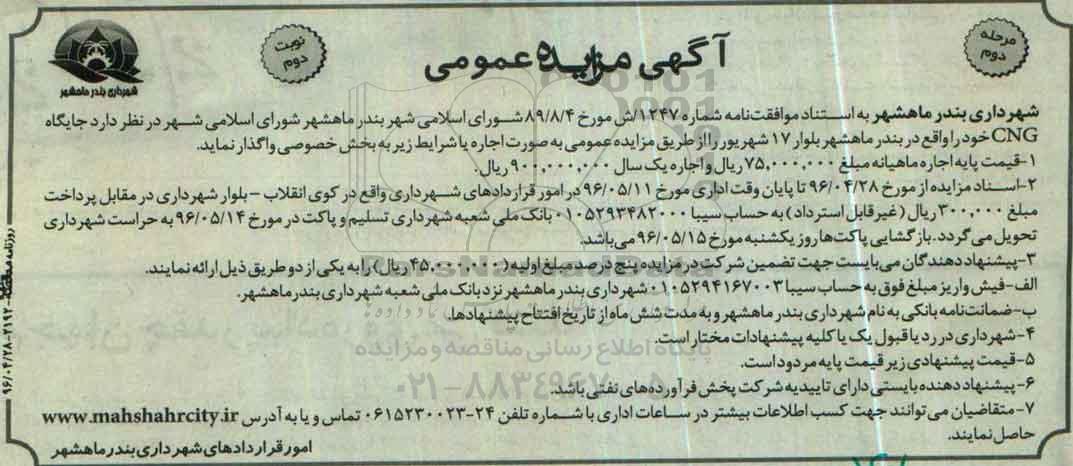 مرحله دوم
آگهی مزایده عمومی
نوبت دوم
شهرداری بندر ماهشهر
شهرداری بندر ماهشهر به استناد موافقت‌نامه شماره ۱۲۴۷/ش مورخ ۸۹/۸/۴ شورای اسلامی شهر بندر ماهشهر شورای اسلامی شهر در نظر دارد جایگاه
CNG خود را واقع در بندر ماهشهر بلوار ۱۷ شهریور را از طریق مزایده عمومی به صورت اجاره با شرایط زیر به بخش خصوصی واگذار نماید.
۱-قیمت پایه اجاره ماهیانه مبلغ ۷۵,۰۰۰,۰۰۰ ریال و اجاره یک سال ۹۰۰,۰۰۰,۰۰۰ ریال.
۲-اسناد مزایده از مورخ ۹۶/۰۴/۲۸ تا پایان وقت اداری مورخ ۹۶/۰۵/۱۱ در امور قراردادهای شهرداری واقع در کوی انقلاب – بلوار شهرداری در مقابل پرداخت
مبلغ ۳۰۰,۰۰۰ ریال (غیر قابل استرداد) به حساب سیبا ۰۱۰۵۲۹۳۴۸۲۰۰۰ بانک ملی شعبه شهرداری تسلیم و پاکت در مورخ ۹۶/۰۵/۱۴ به حراست شهرداری
تحویل می گردد. بازگشایی پاکت‌ها روز یکشنبه مورخ ۹۶/۰۵/۱۵ می باشد.
۳-پیشنهاد دهندگان می بایست جهت تضمین شرکت در مزایده پنج درصد مبلغ اولیه (۴۵,۰۰۰,۰۰۰ ریال) را به یکی از دو طریق ذیل ارائه نمایند.
الف-فیش واریز مبلغ فوق به حساب سیبا ۰۱۰۵۲۹۴۱۶۷۰۰۳ شهرداری بندر ماهشهر نزد بانک ملی شعبه شهرداری بندر ماهشهر.
ب-ضمانت‌نامه بانکی به نام شهرداری بندر ماهشهر و به مدت شش ماه از تاریخ افتتاح پیشنهادها.
۴-شهرداری در رد یا قبول یک یا کلیه پیشنهادات مختار است.
۵-قیمت پیشنهادی زیر قیمت پایه مردود است.
۶-پیشنهاد دهنده بایستی دارای تاییدیه شرکت پخش فرآورده‌های نفتی باشد.
۷-متقاضیان می توانند جهت کسب اطلاعات بیشتر در ساعات اداری با شماره تلفن ۲۴-۰۶۱۵۲۳۰۰۲۳ تماس و یا به آدرس www.mahshahrcity.ir
حاصل نمایند.
امور قراردادهای شهرداری بندر ماهشهر
پایگاه اطلاع رسانی مناقصه و مزایده
۹۶/۰۴/۲۸-۴۱۹۲